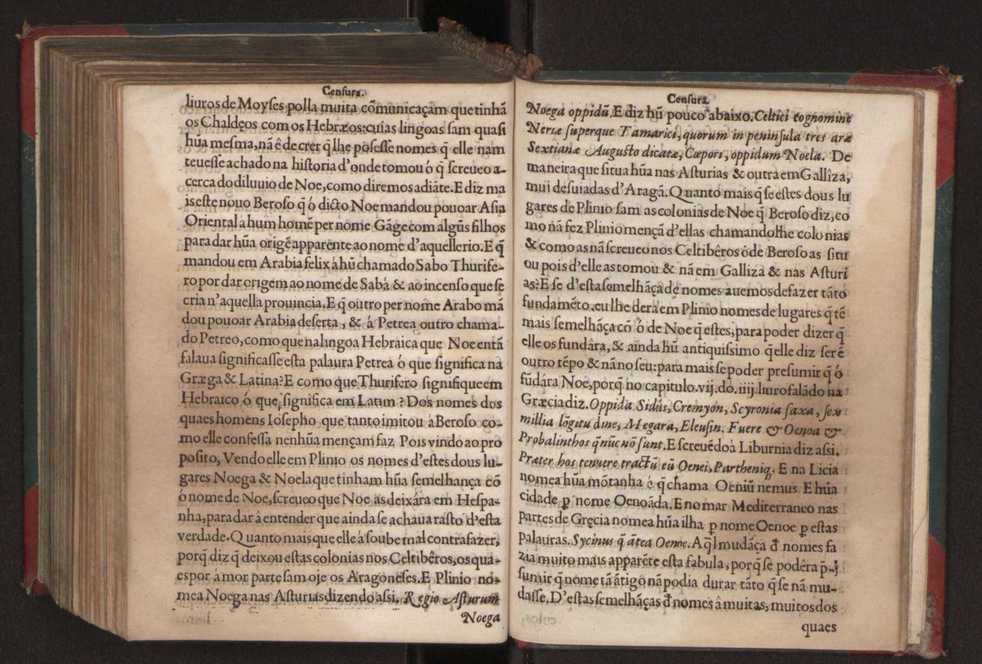 Censura.
liuros de Moyses polla muita cõmunicaçam que tinhã
os Chaldeos com os Hebræos: cuias lingoas sam quasi
hũa mesma, nã é de crer q̃ lhe posesse nomes q̃ elle nam
teuesse achado na historia d'onde tomou ó q̃ screueo a-
cerca do diluuio de Noe, como diremos adiãte. E diz ma
is este nouo Beroso q̃ ó dicto Noe mandou pouoar Asia
Oriental a hum homẽ per nome Gãge com algũs filhos
para dar hũa origẽ apparente ao nome d'aquelle rio. E q̃
mandou em Arabia felix à hũ chamado Sabo Thurife-
ro por dar origem ao nome de Sabá & ao incenso que se
cria n'aquella prouincia. E q̃ outro per nome Arabo mã
dou pouoar Arabia deserta, & á Petrea outro chama-
do Petreo, como que na lingoa Hebraica que Noe entã
falaua significasse esta palaura Petrea ó que significa na
Græga & Latina? E como que Thurifero signifique em
Hebraico ó que significa em Latim? Dos nomes dos
quaes homens Iosepho que tanto imitou à Beroso co-
mo elle confessa nenhũa mençam faz. Pois vindo ao pro
posito, Vendo elle em Plinio os nomes d'estes dous lu-
gares Noega & Noela que tinham hũa semelhança cõ
ó nome de Noe, screueo que Noe as deixára em Hespa-
nha, para dar à entender que ainda se achaua rasto d'esta
verdade. Quanto mais que elle à soube mal contrafazer,
porq̃ diz q̃ deixou estas colonias nos Celtibêros, os qua-
es por à mor parte sam oje os Aragoneses. E Plinio no-
mea Noega nas Asturias dizendo assi, Regio Asturum
Noega
Censura.
Noega oppidũ. E diz hũ pouco abaixo. Celtici cognomine
Neriæ superque Tamarici, quorum in peninsula tres aræ
Sextianæ Augusto dicatæ, Cœpori, oppidum Noela. De
maneira que situa hũa nas Asturias & outra em Galliza,
mui desuiadas d'Aragã. Quanto mais q̃ se estes dous lu
gares de Plinio sam as colonias de Noe q̃ Beroso diz, co
mo nã fez Plinio mençã d'ellas chamandolhe colonias
& como as nã screueo nos Celtibêros óde Beroso as situ
ou pois d'elle as tomou & nã em Galliza & nas Asturi
as? E se d'esta semelhãça de nomes auemos de fazer tãto
fundamẽto, eu lhe dera em Plinio nomes de lugares q̃ tẽ
mais semelhãça cõ ó de Noe q̃ estes, para poder dizer q̃
elle os fundâra, & ainda hũ antiquissimo q̃ elle diz ser ẽ
outro tẽpo & nã no seu: para mais se poder presumir q̃ ó
fũdára Noe, porq̃ no capitulo. vij. do. iiij. liuro falãdo na
Græcia diz. Oppida Sidus, Cremyon, Scyronia saxa, sex
millia lõgitudine, Megara, Eleusin. Fuere & Oenoa &
Probalinthos q̃ nũc nõ sunt. E screuẽdo à Liburnia diz assi.
Præter hos tenuere tractũ eũ Oenei, Partheniq̃. E na Licia
nomea hũa mõtanha é q̃ chama Oeniũ nemus. E hũa
cidade p nome Oenoãda. E no mar Mediterraneo nas
partes de Grecia nomea hũa ilha p nome Oenoe p estas
palauras. Sycinus q̃ ãtea Oenoe. A q̃l mudãça d̃ nomes fa
zia muito mais apparẽte esta fabula, por q̃ se podèra p-
sumir q̃ nome tã ãtigo nã podia durar tãto q̃ se nã mu-
dasse. D'estas semelhãças d̃ nomes â muitas, muitos dos
quaes